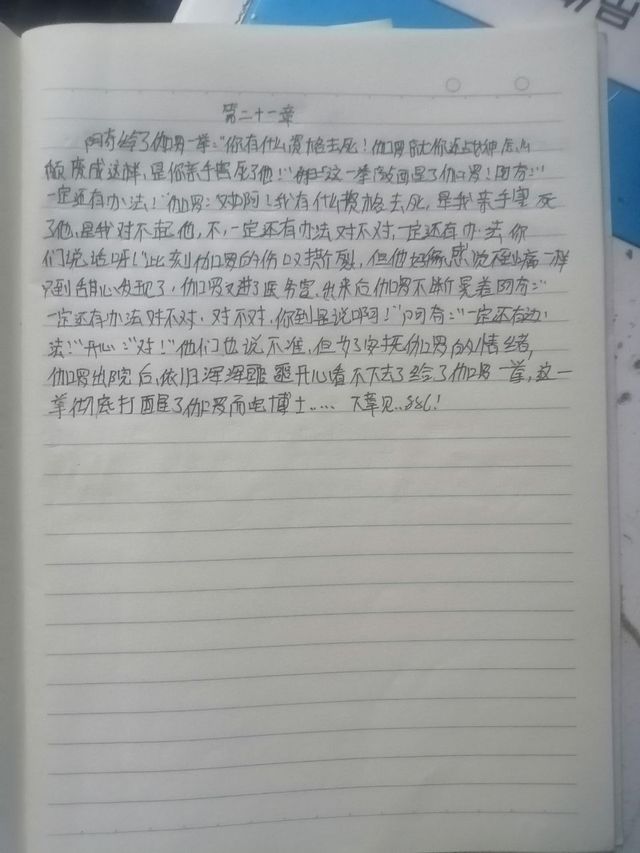 第二十一章
阿奇给了伽罗一拳:"你有什么资格去死!伽罗就你还战神后人
颓废成这样,是你亲手害死了他!"这一拳敲醒了伽罗!阿奇:"
一定还有办法!"伽罗:对啊!我有什么资格去死,是我亲手害死
了他,是我对不起他,不,一定还有办法对不对,一定还有办法你
们说话呀!"此刻伽罗的伤口又撕裂,但他好像感觉不到痛一样
只到甜心发现了,伽罗又进了医务室.出来后伽罗不断晃着阿奇:"
一定还有办法对不对,对不对,你到是说啊!"阿奇:"一定还有办
法!"开心:"对!"他们也说不准,但为了安抚伽罗的情绪,
伽罗出院后,依旧浑浑噩噩开心看不下去了给了伽罗一拳,这一
拳彻底打醒了伽罗而宅博士…… 下章见..886!